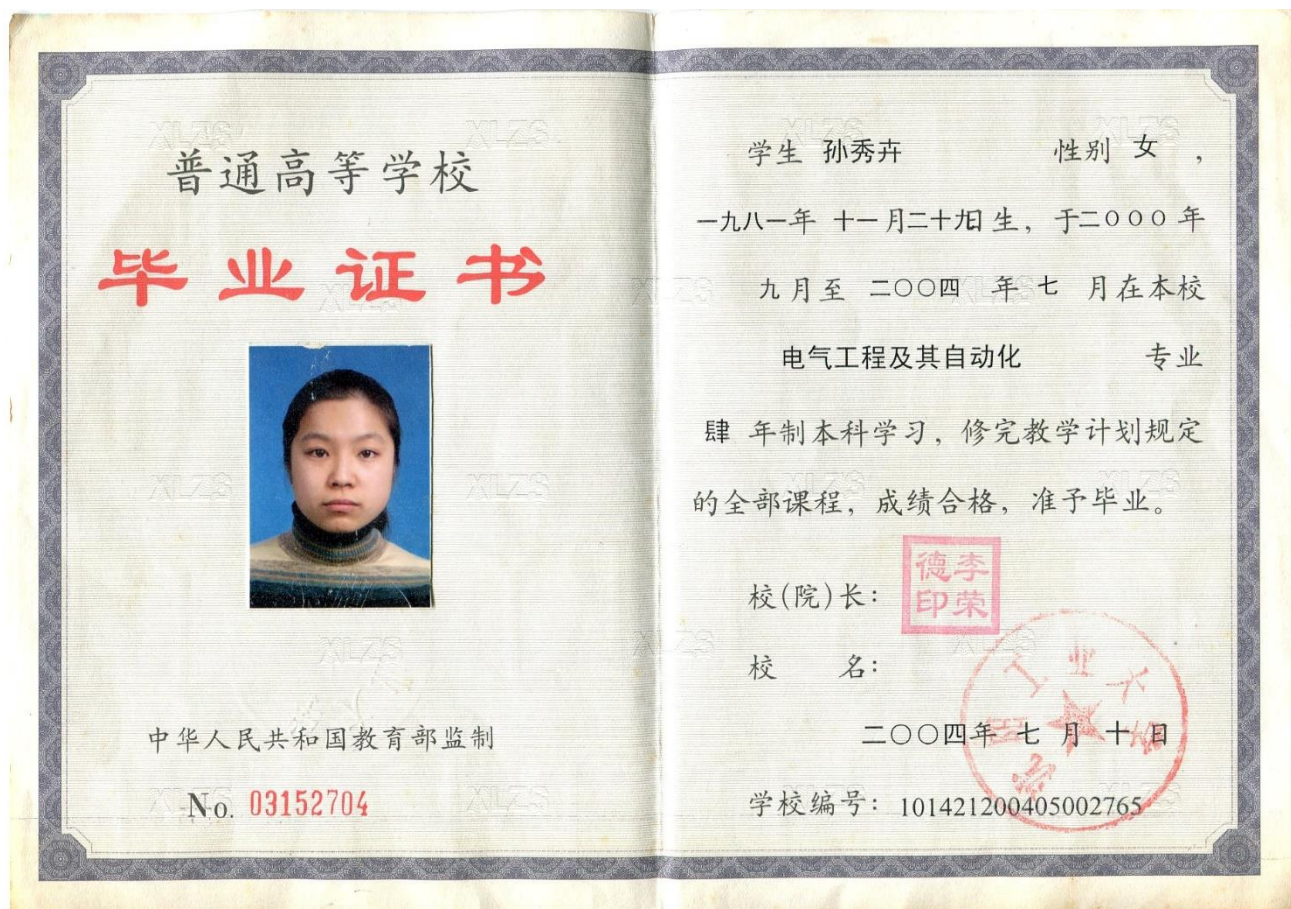 普通高等学校
毕业证书
中华人民共和国教育部监制
No. 03152704
学生 孙秀卉 性别 女 ，
一九八一年 十一月二十九日生，于二000年
九月至 二〇〇四 年 七 月在本校
电气工程及其自动化 专业
肆 年制本科学习，修完教学计划规定
的全部课程，成绩合格，准予毕业。
校(院)长：
李荣德印
校 名：
工业大学
二〇〇四年 七 月 十 日
学校编号：101421200405002765
XLZS
XLZS
XLZS
XLZS
XLZS
XLZS
XLZS
XLZS